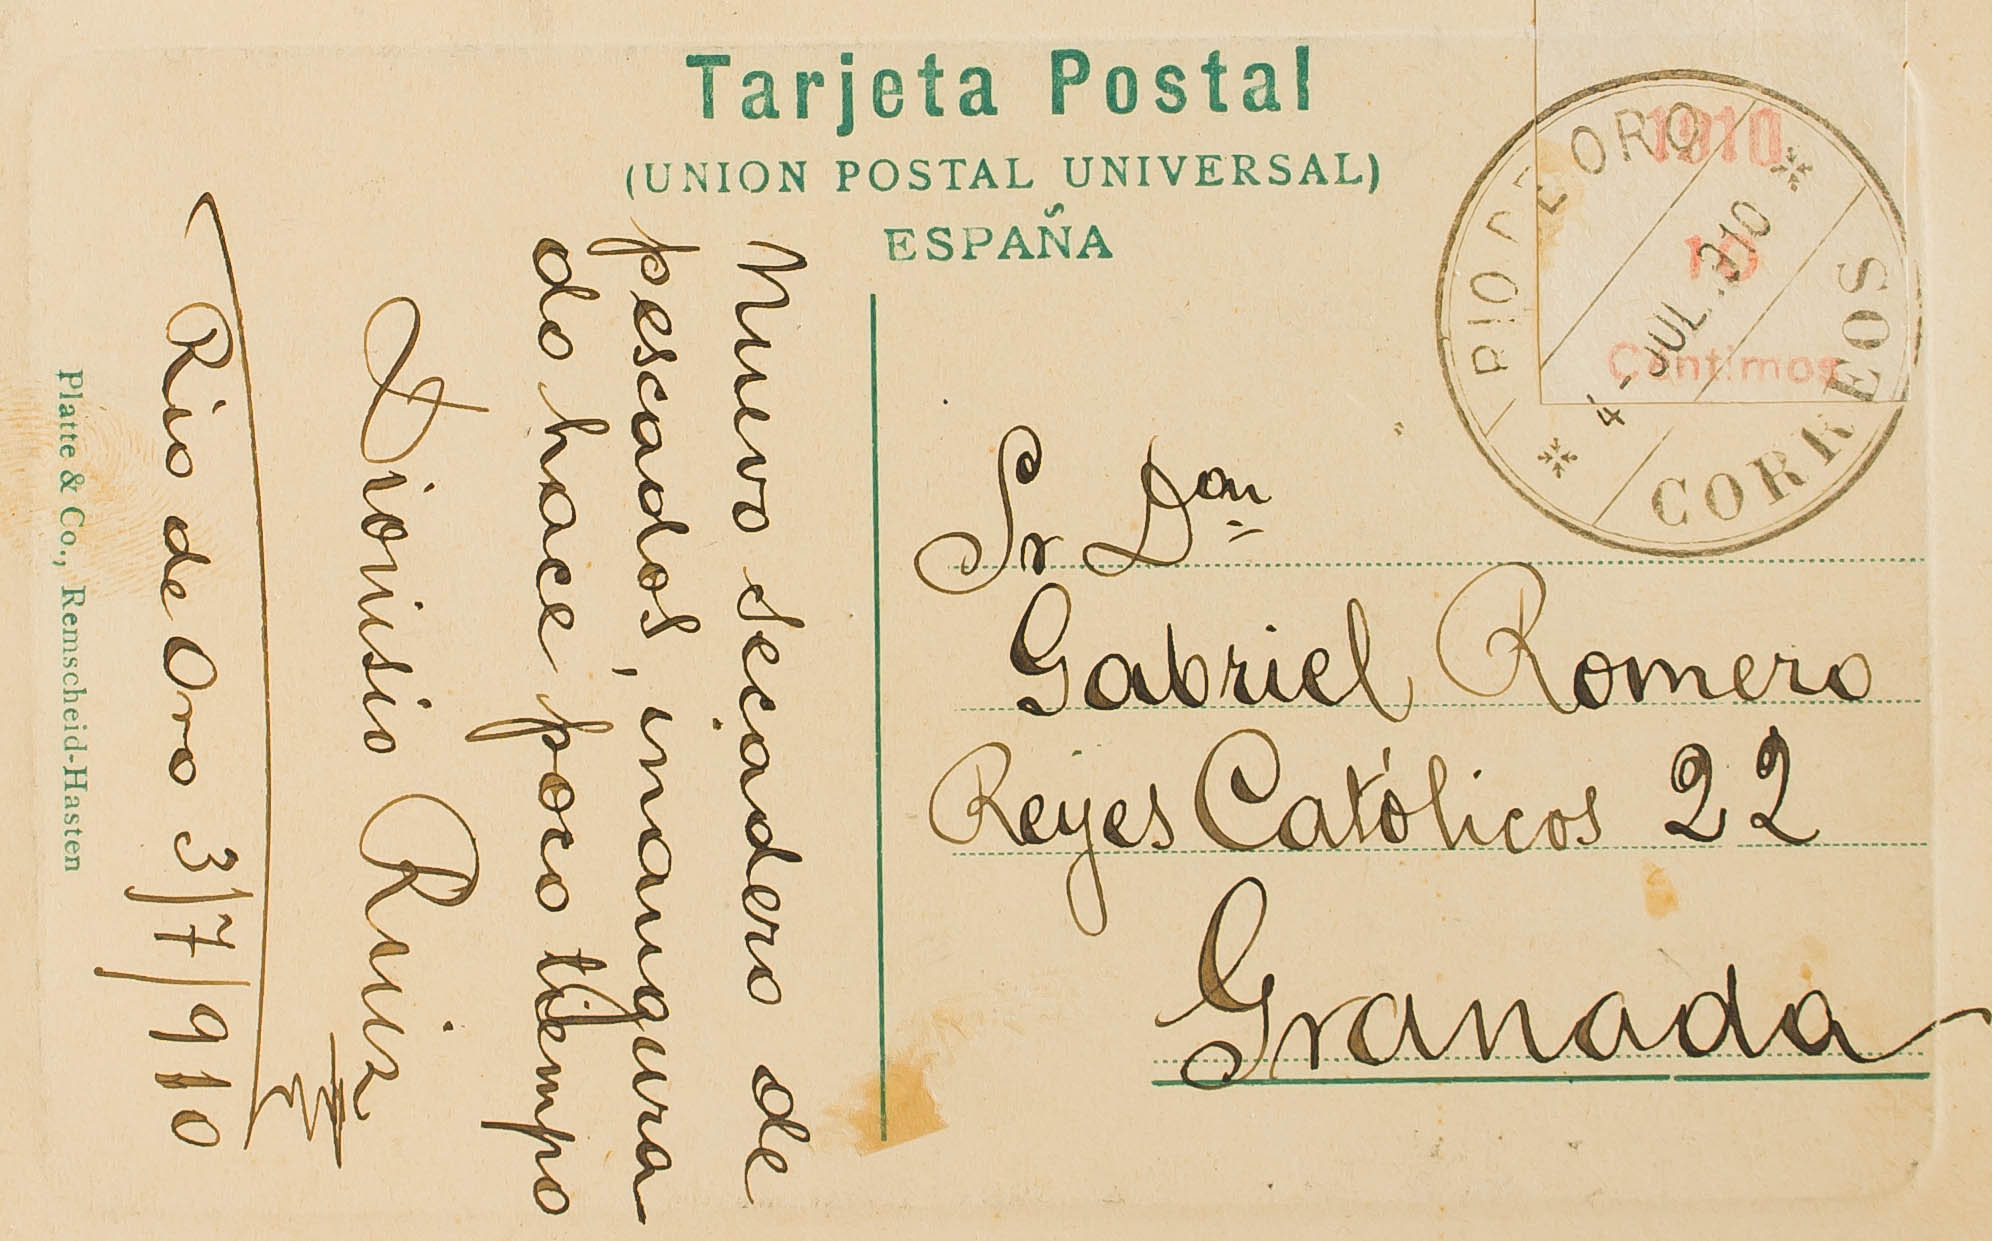 Tarjeta Postal
(UNION POSTAL UNIVERSAL)
ESPAÑA
RIO DE ORO
4 - JUL. 910
CORREOS
1910
10
Centimos
Sr Don
Gabriel Romero
Reyes Católicos 22
Granada
Nuevo secadero de
pescados, inaugura
do hace poco tiempo
Dionisio Ruiz
Rio de Oro 3/7/910
Platte & Co., Remscheid-Hasten